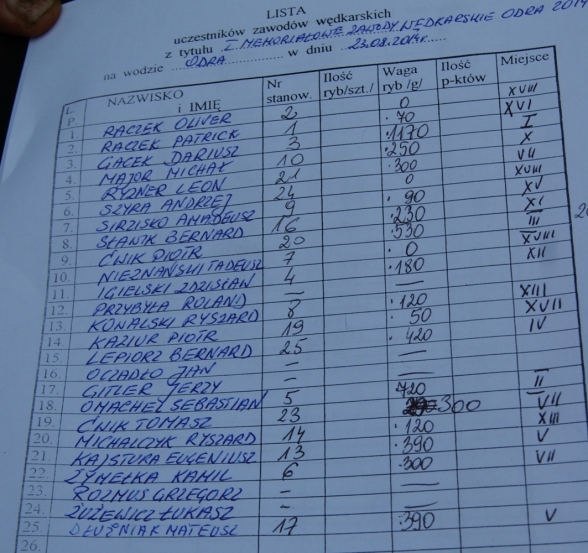 LISTA
uczestników zawodów wędkarskich
z tytułu I. MEMORIAŁOWE ZAWODY WĘDKARSKIE ODRA 2014
na wodzie ODRA w dniu 23.08.2014r.
L. P. NAZWISKO i IMIĘ Nr stanow. Ilość ryb/szt./ Waga ryb /g/ Ilość p-któw Miejsce
1. RACZEK OLIVER 2 0 XVIII
2. RACZEK PATRICK 1 70 XVI
3. GACEK DARIUSZ 3 1170 I
4. MAJOR MICHAŁ 10 250 X
5. RYDNER LEON 21 300 VII
6. SZYRA ANDRZEJ 24 0 XVIII
7. SIRZISKO AMADEUSZ 9 90 XV
8. SŁAWIK BERNARD 16 230 XI
9. ĆWIK PIOTR 20 530 III
10. NIEZNAŃSKI TADEUSZ 7 0 XVIII
11. IGIELSKI ZDZISŁAW 4 180 XII
12. PRZYBYŁA ROLAND – —
13. KOWALSKI RYSZARD 8 120 XIII
14. KAZIUR PIOTR 19 50 XVII
15. LEPIORZ BERNARD 25 420 IV
16. OCZADŁO JAN – —
17. GITLER JERZY – —
18. OMACHEL SEBASTIAN 5 720 II
19. ĆWIK TOMASZ 23 300 VII
20. MICHALCZYK RYSZARD 14 120 XIII
21. KAJSTURA EUGENIUSZ 13 390 V
22. ŻYMEŁKA KAMIL 6 300 VII
23. ROZMUS GRZEGORZ – —
24. ŻUŻEWICZ ŁUKASZ – —
25. DŁUŹNIAK MATEUSZ 17 390 V
26.